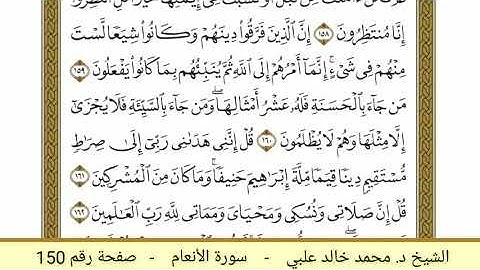 إِنَّا مُنتَظِرُونَ ١٥٨ إِنَّ ٱلَّذِينَ فَرَّقُواْ دِينَهُمْ وَكَانُواْ شِيَعًا لَّسْتَ
مِنْهُمْ فِى شَىْءٍ إِنَّمَآ أَمْرُهُمْ إِلَى ٱللَّهِ ثُمَّ يُنَبِّئُهُم بِمَا كَانُواْ يَفْعَلُونَ ١٥٩
مَن جَآءَ بِٱلْحَسَنَةِ فَلَهُۥ عَشْرُ أَمْثَالِهَا وَمَن جَآءَ بِٱلسَّيِّئَةِ فَلَا يُجْزَىٰٓ
إِلَّا مِثْلَهَا وَهُمْ لَا يُظْلَمُونَ ١٦٠ قُلْ إِنَّنِى هَدَىٰنِى رَبِّىٓ إِلَىٰ صِرَٰطٍ
مُّسْتَقِيمٍ دِينًا قِيَمًا مِّلَّةَ إِبْرَٰهِيمَ حَنِيفًا وَمَا كَانَ مِنَ ٱلْمُشْرِكِينَ ١٦١
قُلْ إِنَّ صَلَاتِى وَنُسُكِى وَمَحْيَاىَ وَمَمَاتِى لِلَّهِ رَبِّ ٱلْعَٰلَمِينَ ١٦٢
الشيخ د. محمد خالد علبي - سورة الأنعام - صفحة رقم 150